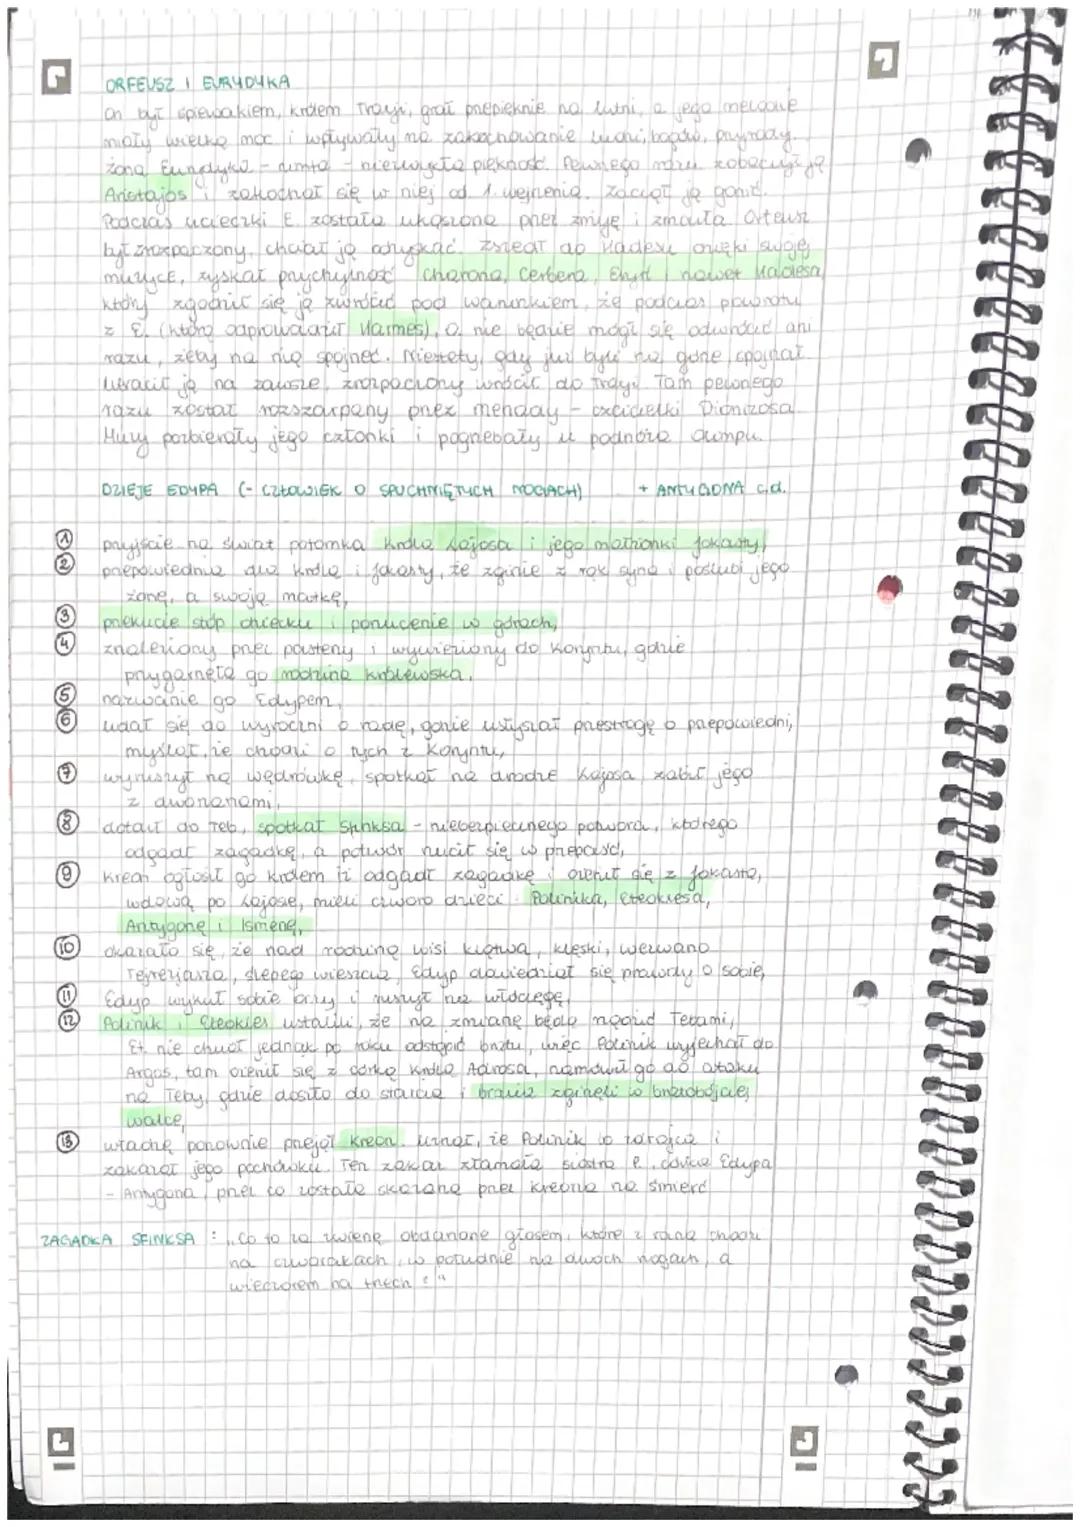 ORFEUSZ I EURYDYKA
On był śpiewakiem, królem Tracji, grał przepięknie na lutni, a jego melodie
miały wielką moc i wpływały na zachowanie ludzi, bogów, przyrody.
Żona Eurydyka - nimfa - niezwykła piękność. Pewnego razu zobaczył ją
Aristajos i zakochał się w niej od 1. wejrzenia, zaczął ją gonić.
Podczas ucieczki E. została ukąszona przez żmiję i zmarła. Orfeusz
był zrozpaczony, chciał ją odzyskać. Zszedł do Hadesu dzięki swojej
muzyce, zyskał przychylność Charona, Cerbera, Erynii i nawet Hadesa,
który zgodził się ją zwrócić pod warunkiem, że podczas powrotu
z E. (którą odprowadzał Harmes), O. nie będzie mógł się odwrócić ani
razu, żeby na nią spojrzeć. Niestety, gdy już byli na górze, spojrzał.
Utracił ją na zawsze, zrozpaczony wrócił do Tracji. Tam pewnego
razu został rozszarpany przez menady - czcicielki Dionizosa.
Muzy pozbierały jego członki i pogrzebały u podnóża Olimpu.
DZIEJE EDYPA (- CZŁOWIEK O SPUCHNIĘTYCH NOGACH) + ANTYGONA c.d.
1 przyjście na świat potomka króla Lajosa i jego małżonki Jokasty,
2 przepowiednia dla króla i Jokasty, że zginie z rąk syna i poślubi jego
żonę, a swoją matkę,
3 przekucie stóp dziecku i porzucenie w górach,
4 znaleziony przez pasterzy i wywieziony do Koryntu, gdzie
przygarnęła go rodzina królewska,
5 nazwanie go Edypem,
6 udał się do wyroczni o radę, gdzie usłyszał przestrogę o przepowiedni,
myślał, że chodzi o tych z Koryntu,
7 wyruszył na wędrówkę, spotkał na drodze Lajosa, zabił jego
z dworzanami,
8 dotarł do Teb, spotkał Sfinksa - niebezpiecznego potwora, którego
odgadł zagadkę, a potwór rzucił się w przepaść,
9 Kreon ogłosił go królem bo odgadł zagadkę i ożenił się z Jokastą,
wdową po Lajosie, mieli czworo dzieci: Polinika, Eteoklesa,
Antygonę i Ismenę,
10 okazało się, że nad rodziną wisi klątwa, klęski, wezwano
Tejrezjasza, ślepego wieszcza, Edyp dowiedział się prawdy o sobie,
11 Edyp wykuł sobie oczy i ruszył na włóczęgę,
12 Polinik i Eteokles ustalili, że na zmianę będą rządzić Tebami,
Et. nie chciał jednak po roku odstąpić bratu, więc Polinik wyjechał do
Argos, tam ożenił się z córką króla Adrasa, namówił go do ataku
na Teby, gdzie doszło do starcia i bracia zginęli w bratobójczej
walce,
13 władzę ponownie przejął Kreon. Uznał, że Polinik to zdrajca i
zakazał jego pochówku. Ten zakaz złamała siostra P. córka Edypa
- Antygona, przez co została skazana przez Kreona na śmierć
ZAGADKA SFINKSA : „Co to za zwierzę obdarzone głosem, które z rana chodzi
na czworakach, w południe na dwóch nogach, a
wieczorem na trzech?"